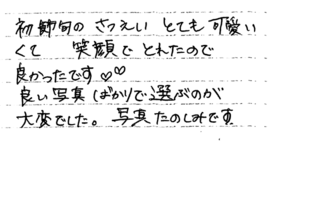 初節句の さつえい とても 可愛い
くて 笑顔で とれたので
良かったです♡♡
良い写真 ばかりで選ぶのが
大変でした。 写真 たのしみです